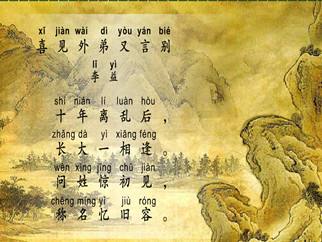 xǐ jiàn wài dì yòu yán bié
喜见外弟又言别
lǐ yì
李益
shí nián lí luàn hòu
十年离乱后，
zhǎng dà yì xiāng féng
长大一相逢。
wèn xìng jīng chū jiàn
问姓惊初见，
chēng míng yì jiù róng
称名忆旧容。